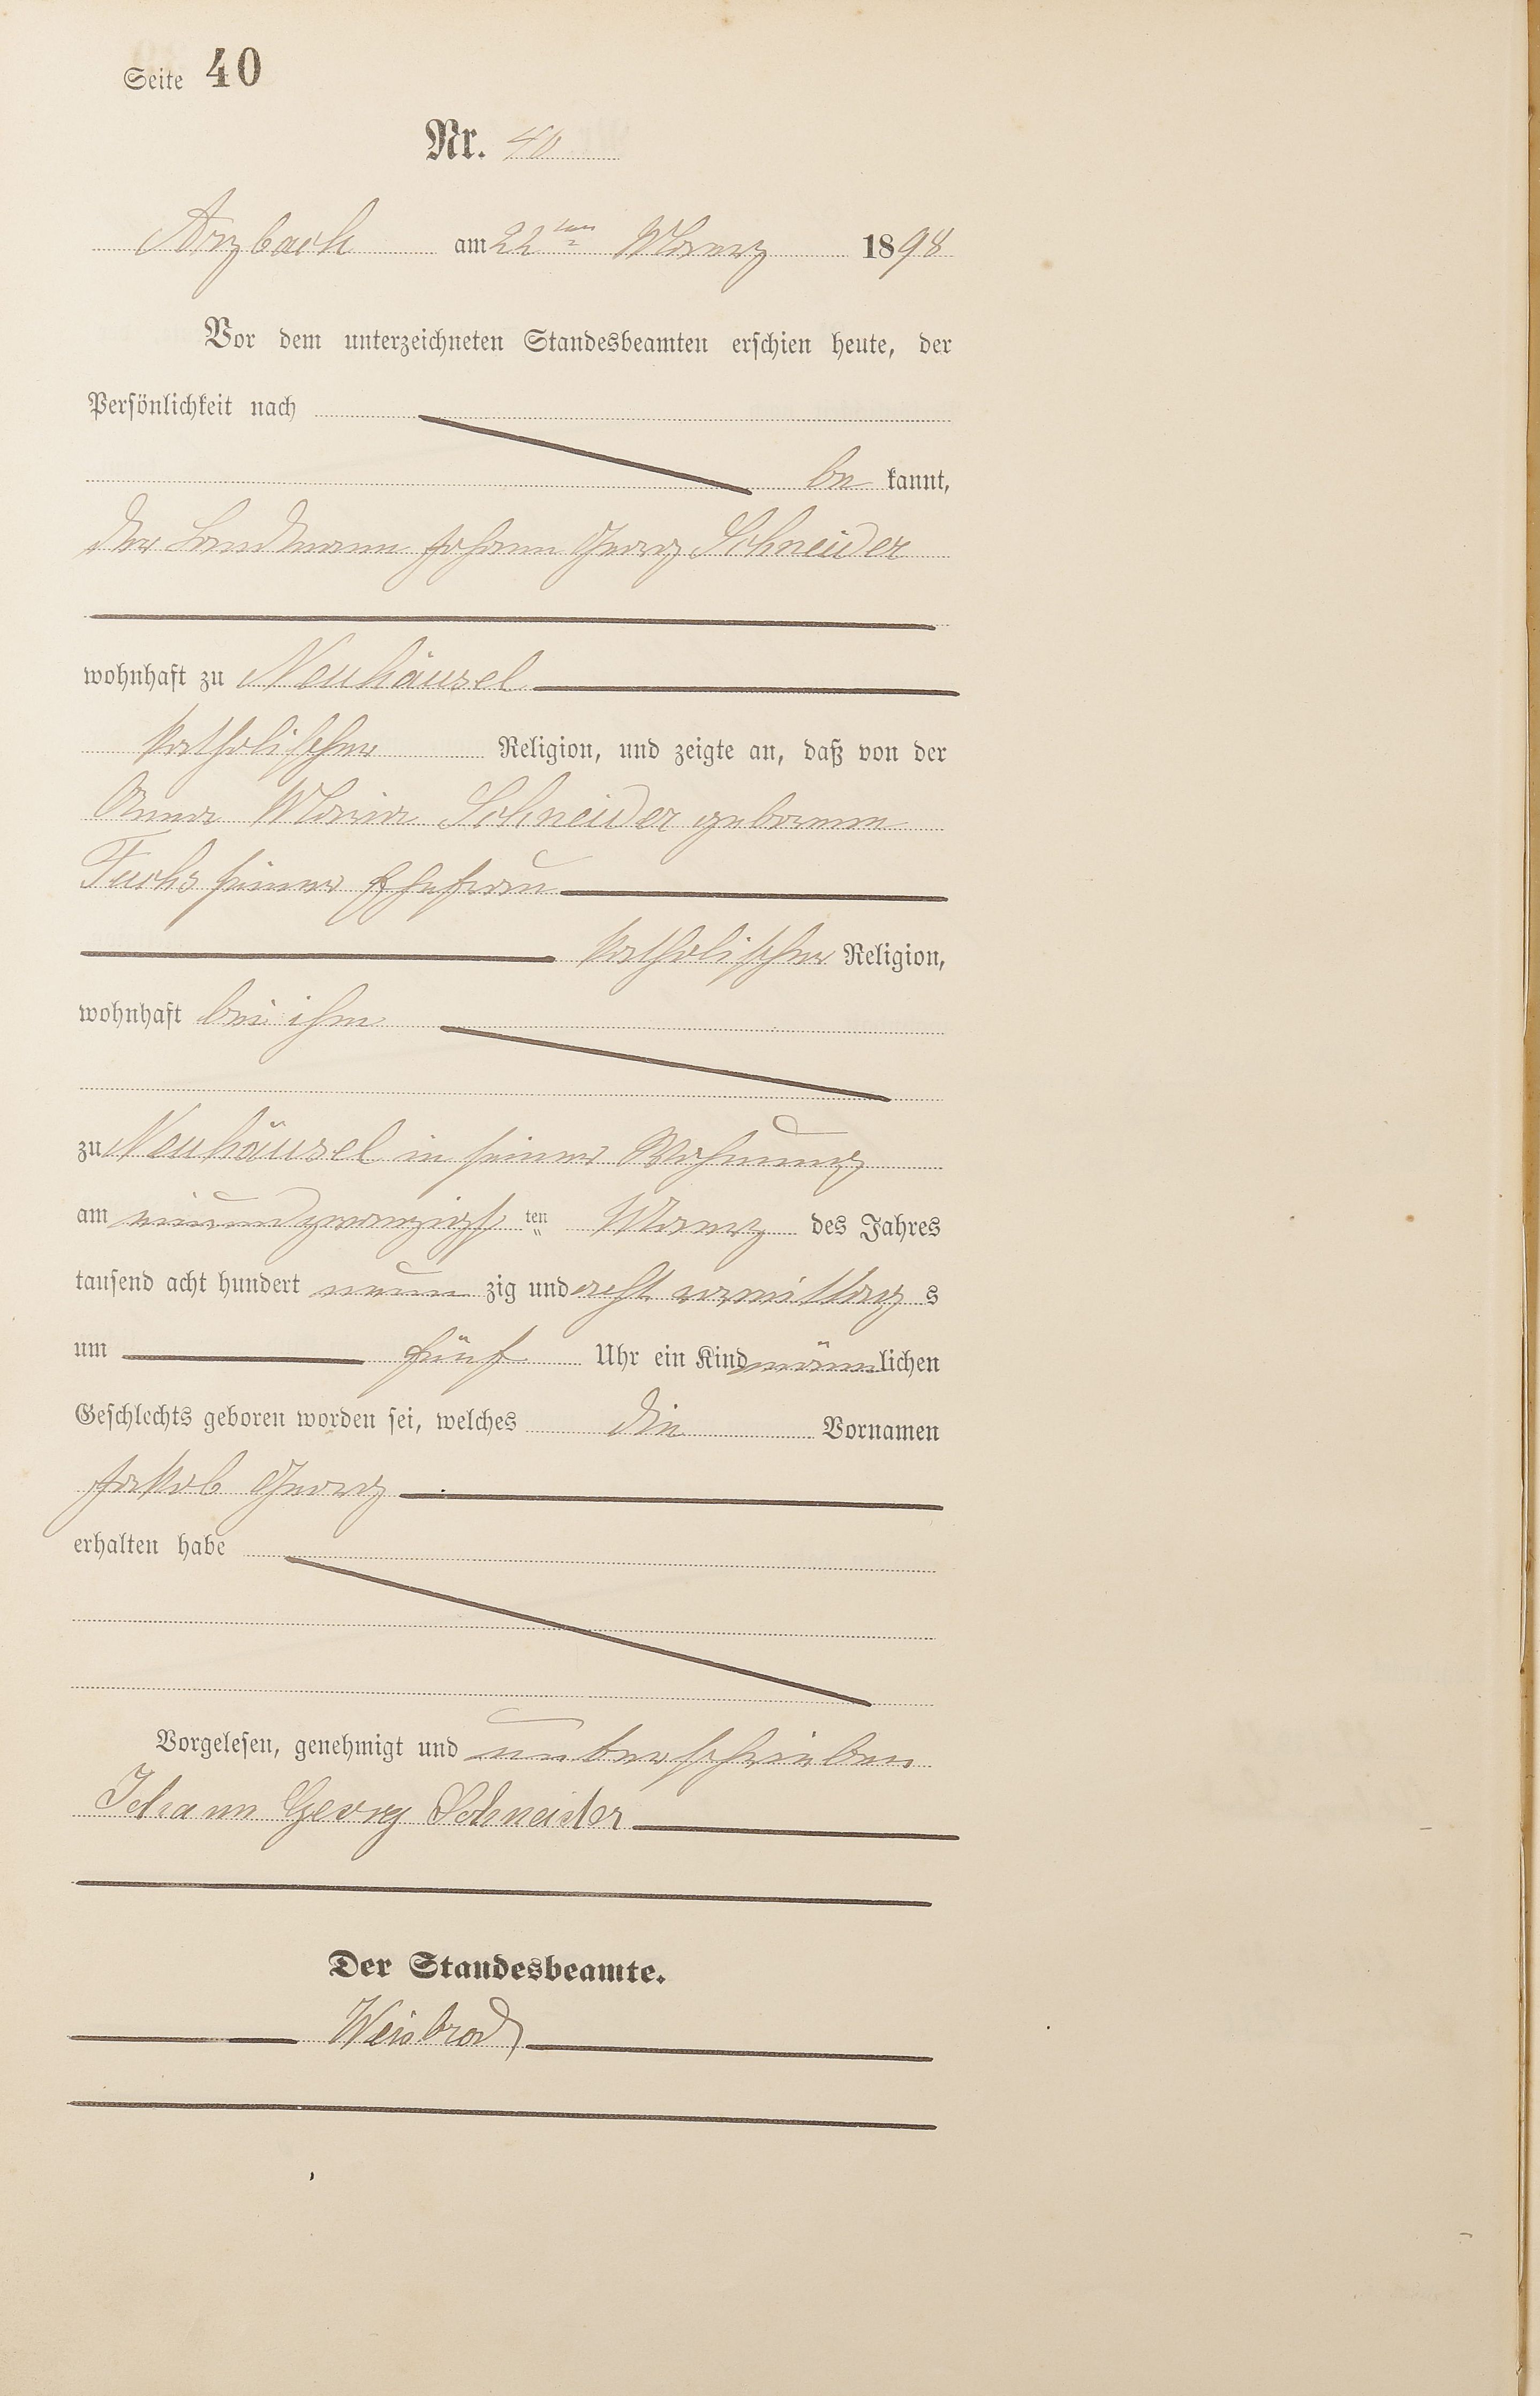 Seite 40
Nr. 40
Arzbach am 22ten Maerz 1898
Vor dem unterzeichneten Standesbeamten erschien heute, der
Persönlichkeit nach
be kannt,
der Landmann Johann Georg Schneider
wohnhaft zu Neuhäusel
katholischer Religion, und zeigte an, daß von der
Anna Maria Schneider geborenen
Fuchs seiner Ehefrau
katholischer Religion,
wohnhaft bei ihm
zu Neuhäusel in seiner Wohnung
am einundzwanzigsten Maerz des Jahres
tausend acht hundert neun zig und acht vormittags
um fünf Uhr ein Kind männlichen
Geschlechts geboren worden sei, welches die Vornamen
Jakob Georg
erhalten habe
Vorgelesen, genehmigt und unterschrieben
Johann Georg Schneider
Der Standesbeamte.
Weisbrod